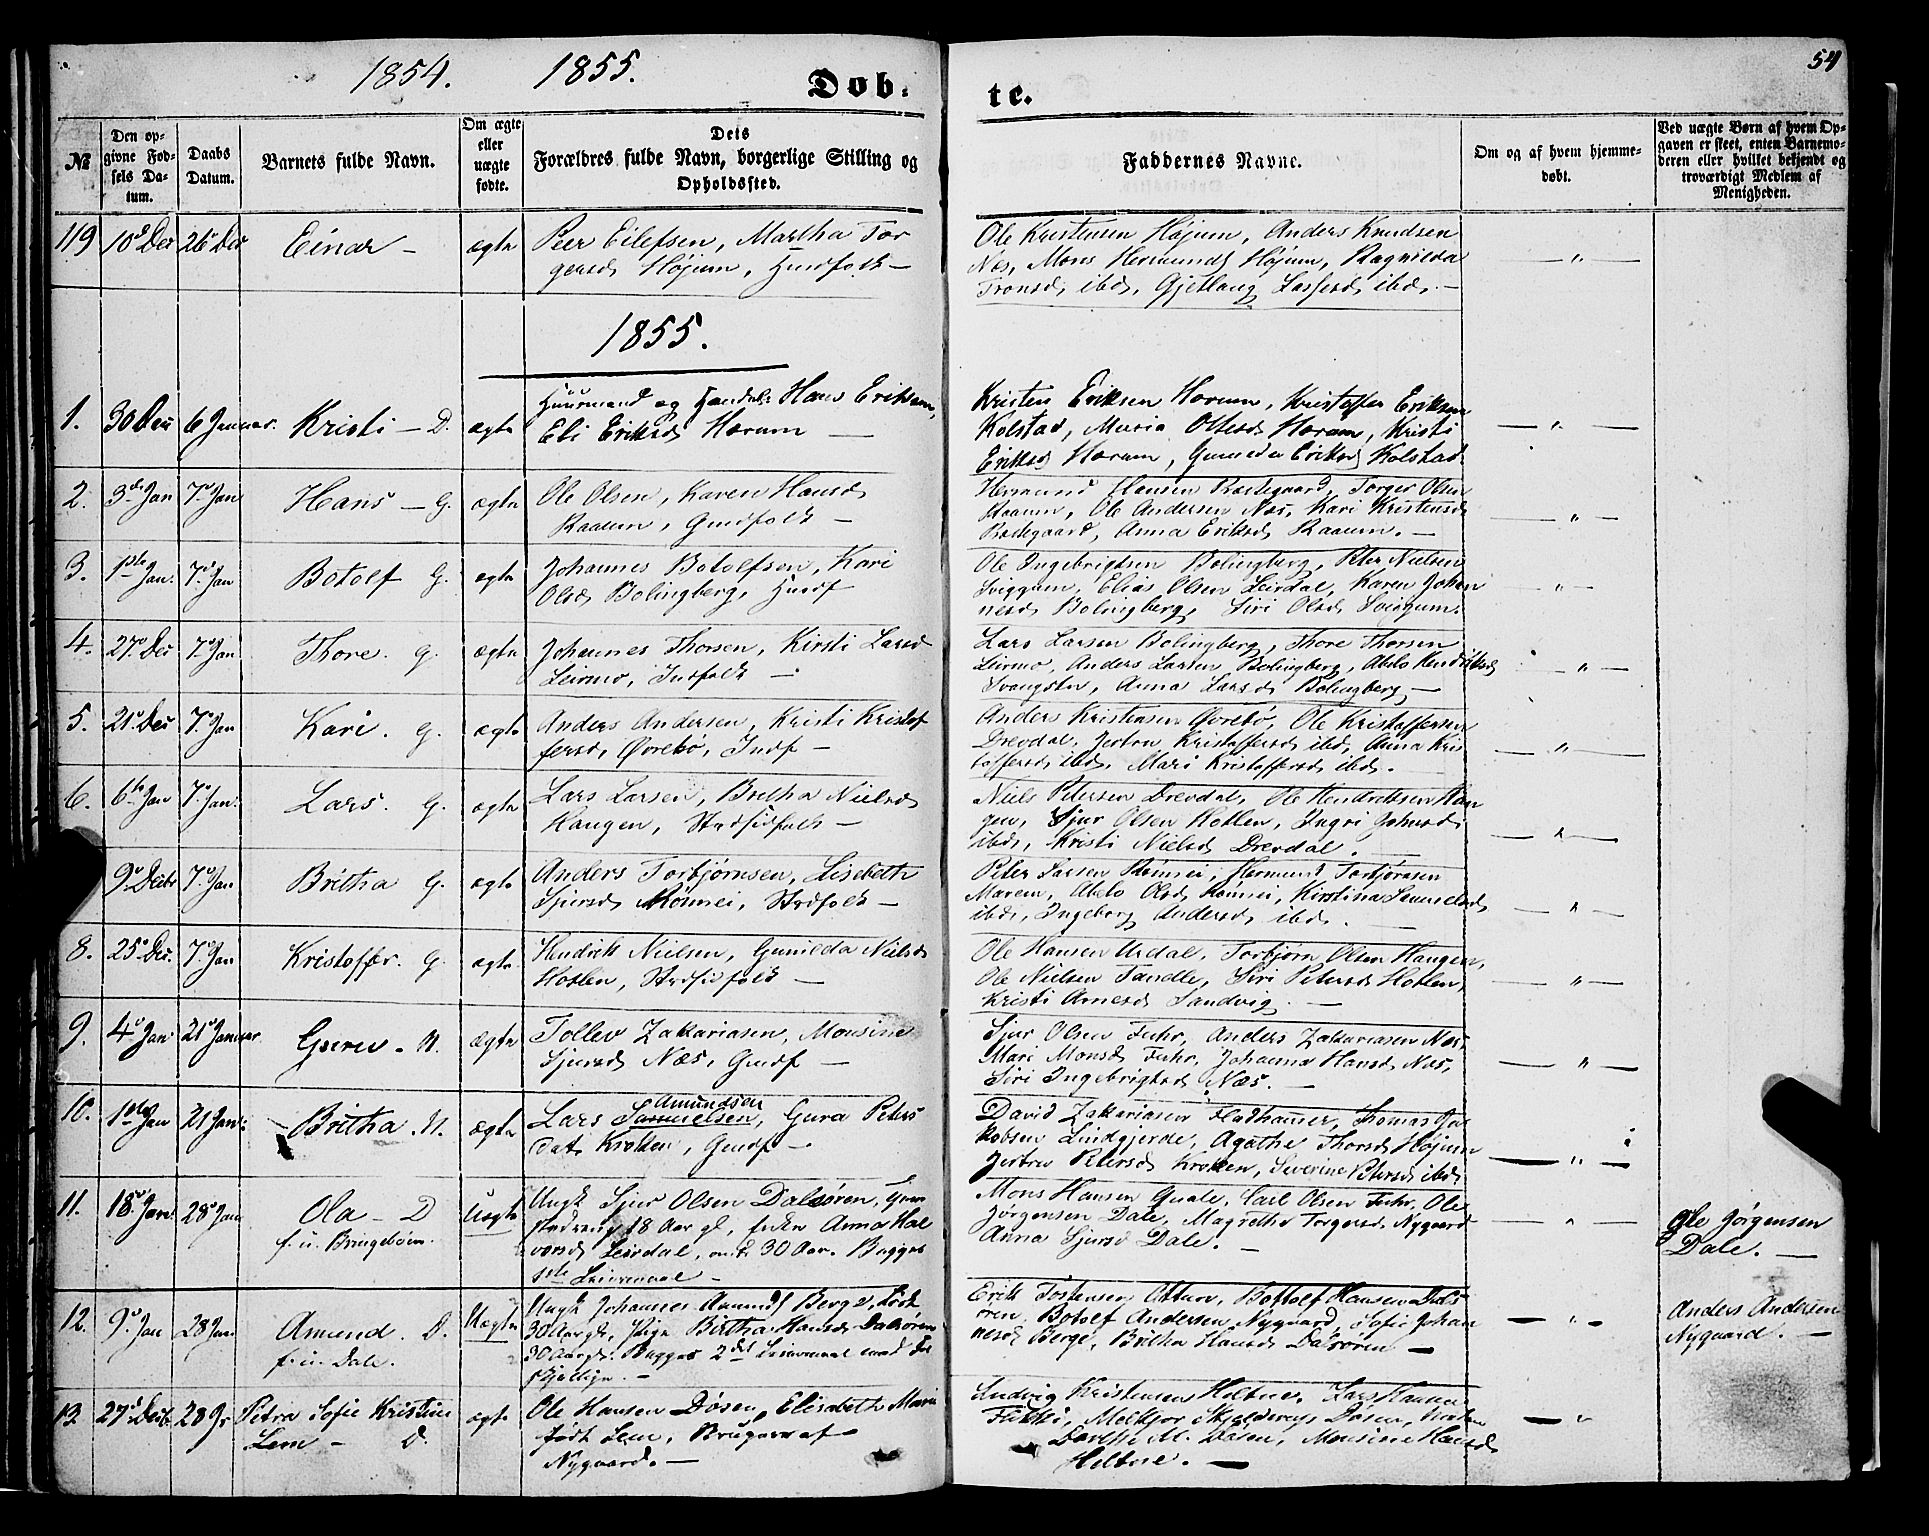 54
1854. 1855. Dob- te.
№
Den op-
givne Fød-
sels Da-
tum.
Daabs
Datum.
Barnets fulde Navn.
Om ægte
eller
uægte
fødte.
Dets
Forældres fulde Navn, borgerlige Stilling og
Opholdssted.
Faddernes Navne.
Om og af hvem hjemme-
døbt.
Ved uægte Børn af hvem Op-
gaven er skeet, enten Barnemo-
deren eller hvilket bekjendt og
troværdigt Medlem af
Menigheden.
119 10 Dec 26 Dec Einar - ægte
Peer Eilefsen, Martha Tor
gersd. Højum, Huusfolk -
Ole Kristensen Højum, Anders Knudsen
Næs, Mons Hermunds. Højum, Ragnilda
Tronsd. ibd., Gjetlaug Lassesd. ibd. -
1855.
1. 30 Dec 6 Januar. Kristi - D. ægte
Huusmand og Hans Eriksen,
Eli Eriksd. Hærum -
Kristen Eriksen Hærum, Kristoffer Eriksen
Kolstad, Maria Ottesd. Hærum, Kristi
Eriksd. Hærum, Eriksd. Kolstad.
2. 3de Jan 7 Jan Hans - G. ægte
Ole Olsen, Karen Hansd.
Raaum, Gmdfolk -
Hermund Hansen Præstegaard, Torger Olsen
Raaum, Ole Andersen Næs, Kari Kristensd.
Præstegaard, Anna Eriksd. Raaum. -
3. 1ste Jan. 7 Jan Botolf G. ægte
Johannes Botolfsen, Kari
Olsd. Bolingberg, Husf
Ole Ingebrigtsen Bolingberg, Peter Nielsen
Sviggum, Elias Olsen Leirdal, Karen Johan
nesd. Bolingberg, Siri Olsd. Sviggum.
4. 27 Dec 7 Jan Thore. G. ægte
Johannes Thorsen, Kirsti Larsd
Leirmo, Indfolk -
Lars Larsen Bolingberg, Thore Thorsen
Leirmo, Anders Larsen Bolingberg, Abelo Hendriksd
Svangstu, Anna Larsd. Bolingberg -
5. 21 Dec 7 Jan Kari. G. ægte
Anders Andersen, Kristi Kristof
fersd. Øvrebø, Indf -
Anders Kristensen Øvrebø, Ole Kristoffersen
Drevdal, Kristoffersd. ibd., Anna Kris
toffersd. ibd. Mari Kristoffersd. ibd.
6. 6te Jan 7 Jan. Lars. G. ægte
Lars Larsen, Britha Nielsd.
Haugen, Strdsidfolk -
Niels Petersen Drevdal, Ole Hendriksen Hau
gen, Sjur Olsen Hotlen, Ingri Johnsd.
ibd., Kristi Nielsd. Drevdal.
9 Decbr 7 Jan Britha G. ægte
Anders Torbjørnsen, Lisebeth
Sjursd. Rønnei, Strdfolk -
Peter Larsen Rønnei, Hermund Torbjørnsen
Marem, Abelo Olsd. Rønnei, Kirstina Samuelsd.
ibd., Ingeborg Andersd. ibd.
8. 25 Dec. 7 Jan Kristoffer. G. ægte
Hendrik Nielsen, Gunilda Nielsd.
Hotlen, Strdsidfolk -
Ole Hansen Urdal, Torbjørn Olsen Haugen,
Ole Nielsen Tandle, Siri Petersd. Hotlen,
Kristi Arnesd. Sandvig. -
9. 4 Jan 21 Januar. Guru. N. ægte
Tollev Zakariasen, Monsine
Sjursd. Næs, Gmdf -
Sjur Olsen Fuhr, Anders Zakariasen Næs,
Mari Monsd. Fuhr, Johanna Hansd. Næs,
Siri Ingebrigtsd. Næs. -
10. 1ste Jan 21 Jan. Britha. N. ægte
Amundsen
Lars Samuelsen, Gura Peters
dat. Kroken, Gmdf -
David Zakariasen Fladhamer, Thomas Ja-
kobsen Lindgjerde, Agathe Thorsd. Højum
Jertru Petersd. Kroken, Severine Petersd. ibd.
11. 18 Jan. 28 Jan Ola - D Uægte
f. u. Bringebøen.
Ungk. Sjur Olsen Dalsøren, Gm
18 Aar gl, Enken Anna Hal
vorsd. Leirdal, 30 Aar. Begges
1ste Leiermaal -
Mons Hansen Quale, Carl Olsen Fuhr, Ole
Jørgensen Dale, Magrethe Torgersd. Nygaard
Anna Sjursd Dale. -
Ole Jørgensen
Dale. -
12. 9 Jan 28 Jan. Amund. D. Uægte
f. u. Dale.
Ungk. Johannes Amunds. Berge, født
30 Aar gl, Pige Birtha Hansd. Dalsøren
30 Aar gl. Begges 2det Leiermaal med for
skjellige. -
Erik Tostensen Ottum, Bottolf Hansen Dalsø
ren, Botolf Andersen Nygaard, Sofie Johan
nesd. Berge, Britha Hansd. Dalsøren -
Anders Andersen
Nygaard. -
13. 27 Decb. 28 Jan Petra Sofie Kristine
Lem - D. ægte
Ole Hansen Døsen, Elisabeth Marie
født Lem, Brugere af
Nygaard. -
Ludvig Kristensen Heltne, Lars Hansen
Flikki, Melkjor Skjelderup Døsen,
Dorethe M. Døsen, Monsine Hansd.
Heltne. -